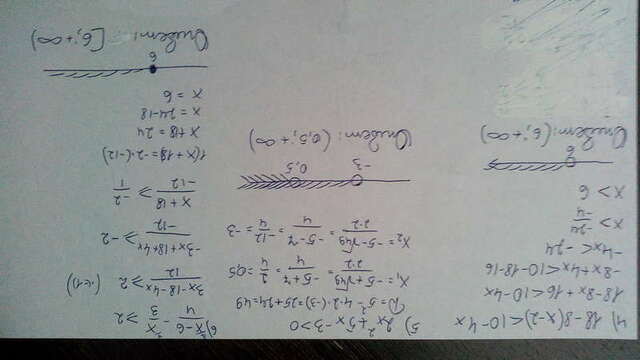 4) 18-8(x-2)<10-4x
18-8x+16<10-4x
-8x+4x<10-18-16
-4x<-24
x> -24/-4
x>6
6
Ответ: (6;+∞)
5) 2x²+5x-3>0
D=5²-4·2·(-3)=25+24=49
x₁= -5+√49/2·2 = -5+7/4 = 2/4 =0,5
x₂= -5-√49/2·2 = -5-7/4 = -12/4 =-3
-3 0,5
Ответ: (0,5;+∞)
6) x-6/4 - x/3 ≥2
3x-18-4x/12 ≥2 (·(-1))
-3x+18+4x/-12 ≥-2
x+18/-12 ≥ -2/1
1(x+18)=-2·(-12)
x+18=24
x=24-18
x=6
6
Ответ: [6;+∞)